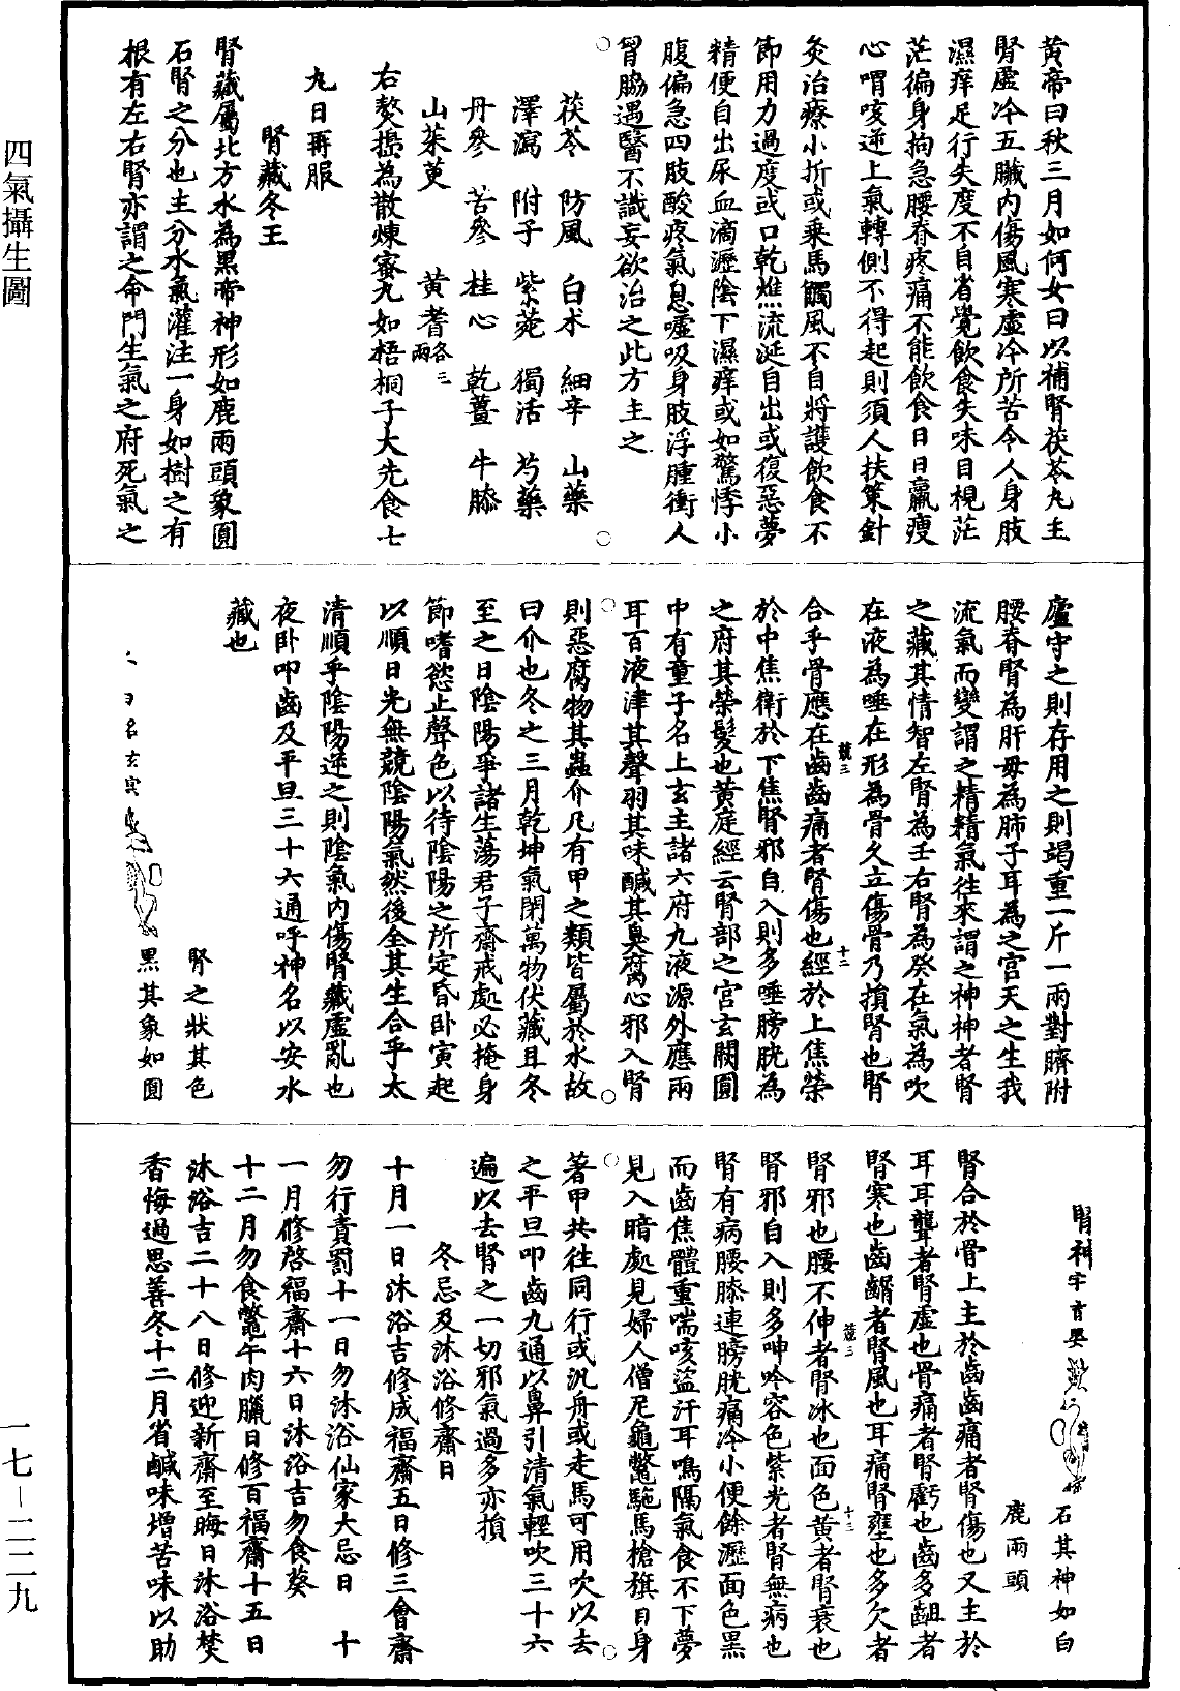 四氣攝生圖
黃帝曰秋三月如何女曰以補腎茯苓丸主
腎虛冷五臟內傷風寒虛冷所苦令人身肢
濕痒足行失度不自省覺飲食失味目視茫
茫徧身拘急腰脊疼痛不能飲食日日羸瘦
心喟咳逆上氣轉側不得起則須人扶策針
灸治療小折或乘馬觸風不自將護飲食不
節用力過度或口乾燋流涎自出或復惡夢
精便自出尿血滴瀝陰下濕痒或如驚悸小
腹偏急四肢酸疼氣息噓吸身肢浮腫衝人
胷脇遇醫不識妄欲治之此方主之
茯苓 防風 白朮 細辛 山藥
澤瀉 附子 紫菀 獨活 芍藥
丹參 苦參 桂心 乾薑 牛膝
山茱萸 黃耆各三兩
右熬搗為散煉蜜丸如梧桐子大先食七
丸日再服
腎藏冬王
腎藏屬北方水為黑帝神形如鹿兩頭象圓
石腎之分也主分水氣灌注一身如樹之有
根有左右腎亦謂之命門生氣之府死氣之
廬守之則存用之則竭重一斤一兩對臍附
腰脊腎為肝母為肺子耳為之宮天之生我
流氣而變謂之精精氣往來謂之神神者腎
之藏其情智左腎為壬右腎為癸在氣為吹
在液為唾在形為骨久立傷骨乃損腎也腎
合乎骨應在齒齒痛者腎傷也經於上焦榮
於中焦衛於下焦腎邪自入則多唾膀胱為
之府其榮髮也黃庭經云腎部之宮玄闕圓
中有童子名上玄主諸六府九液源外應兩
耳百液津其聲羽其味鹹其臭腐心邪入腎
則惡腐物其蟲介凡有甲之類皆屬於水故
曰介也冬之三月乾坤氣閉萬物伏藏且冬
至之日陰陽爭諸生蕩君子齋戒處必掩身
節嗜慾止聲色以待陰陽之所定昏臥寅起
以順日光無競陰陽氣然後全其生合乎太
清順乎陰陽逆之則陰氣內傷腎藏虛亂也
夜臥叩齒及平旦三十六通呼神名以安水
藏也
腎之狀其色
黑其象如圓
名玄冥
腎神字育嬰
石其神如白
鹿兩頭
腎合於骨上主於齒齒痛者腎傷也又主於
耳耳聾者腎虛也骨痛者腎虧也齒多齟者
腎寒也齒齵者腎風也耳痛腎壅也多欠者
腎邪也腰不伸者腎冰也面色黃者腎衰也
腎邪自入則多呻吟容色紫光者腎無病也
腎有病腰膝連膀胱痛冷小便餘瀝面色黑
而齒焦體重喘咳盜汗耳鳴隔氣食不下夢
見入暗處見婦人僧尼龜鱉駞馬槍旗自身
著甲共往同行或汎舟或走馬可用吹以去
之平旦叩齒九通以鼻引清氣輕吹三十六
遍以去腎之一切邪氣過多亦損
冬忌及沐浴修齋日
十月一日沐浴吉修成福齋五日修三會齋
勿行責罰十一日勿沐浴仙家大忌日 十
一月修啓福齋十六日沐浴吉勿食葵
十二月勿食鼈牛肉臘日修百福齋十五日
沐浴吉二十八日修迎新齋至晦日沐浴焚
香悔過思善冬十二月省鹹味增苦味以助
一七-二二九